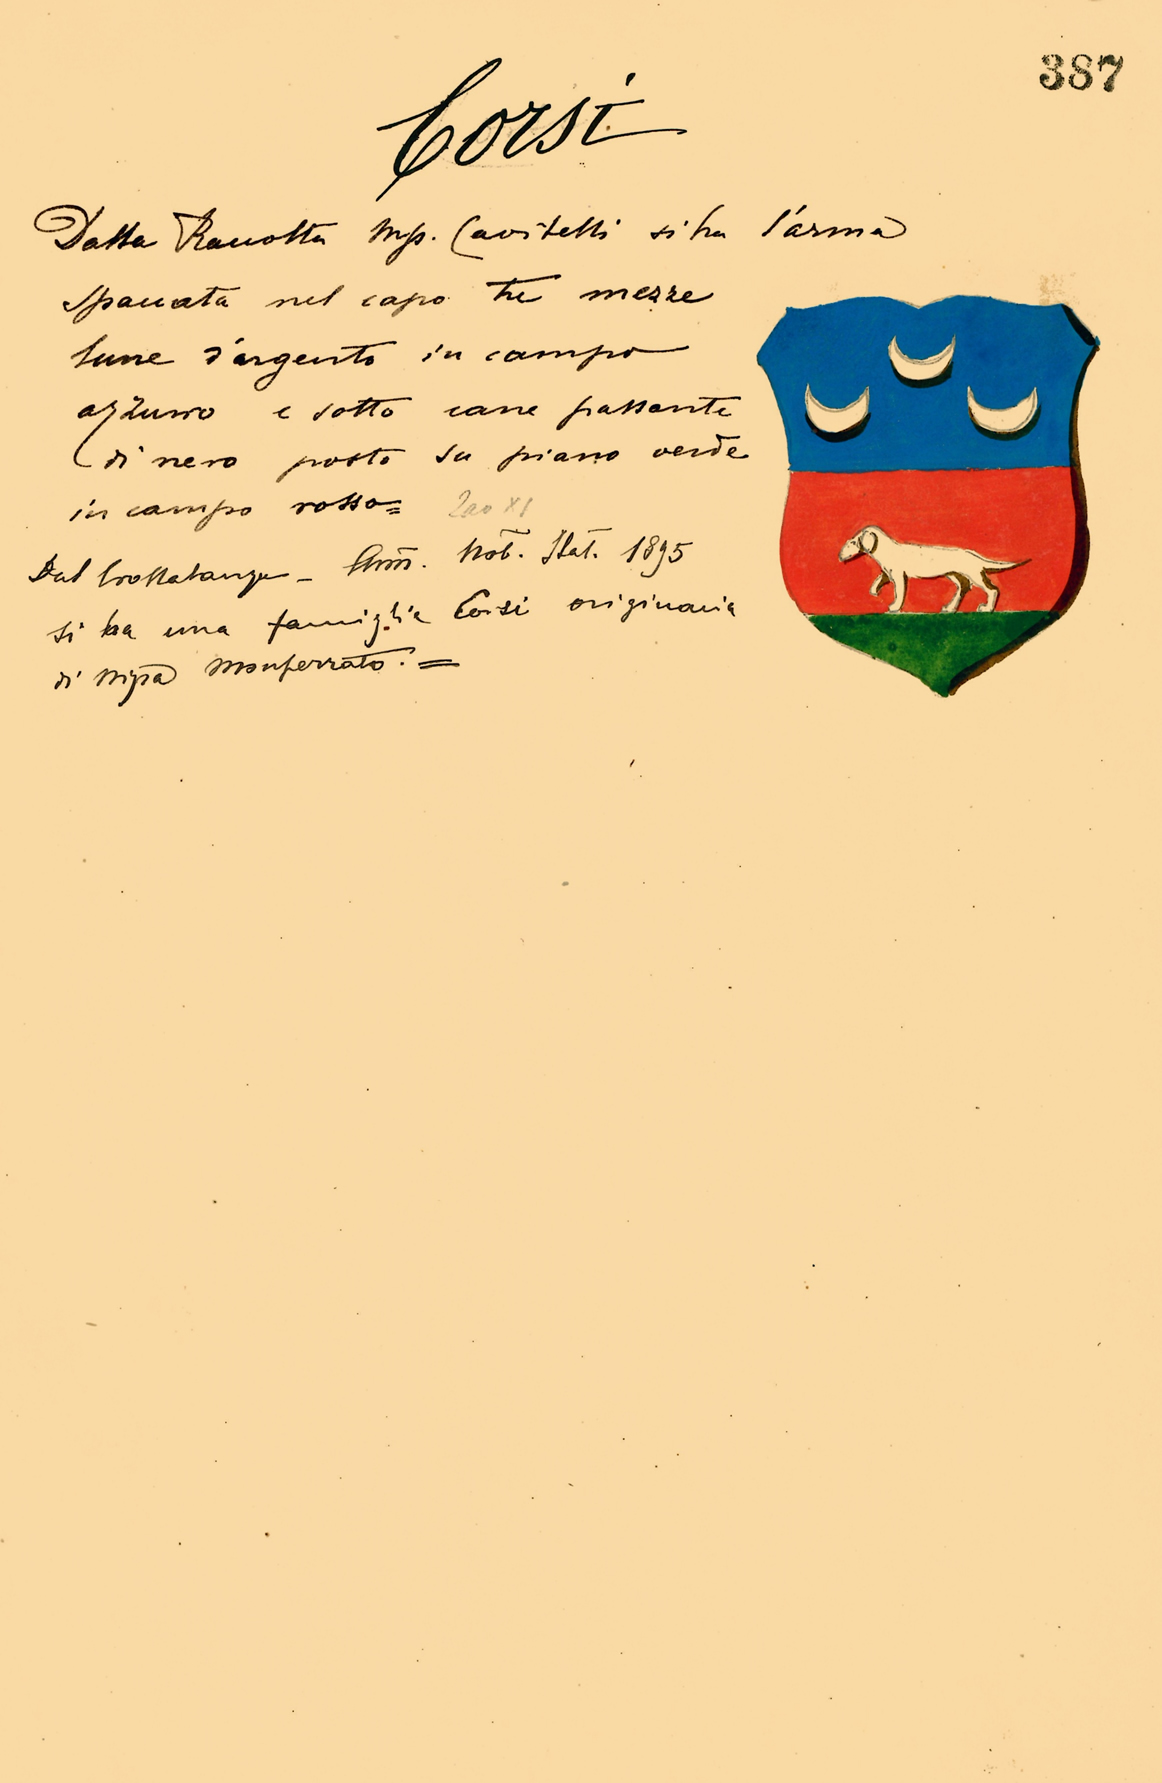 387
Corsi
Dalla Raccolta Mp. Cavitelli si ha l'arma
spaccata nel capo tre mezze
lune d'argento in campo
azzurro e sotto cane passante
di nero posto su piano verde
in campo rosso=
Dal Crollalanza - Ann. Nob. Ital. 1895
si ha una famiglia Corsi originaria
di Nizza Monferrato. =